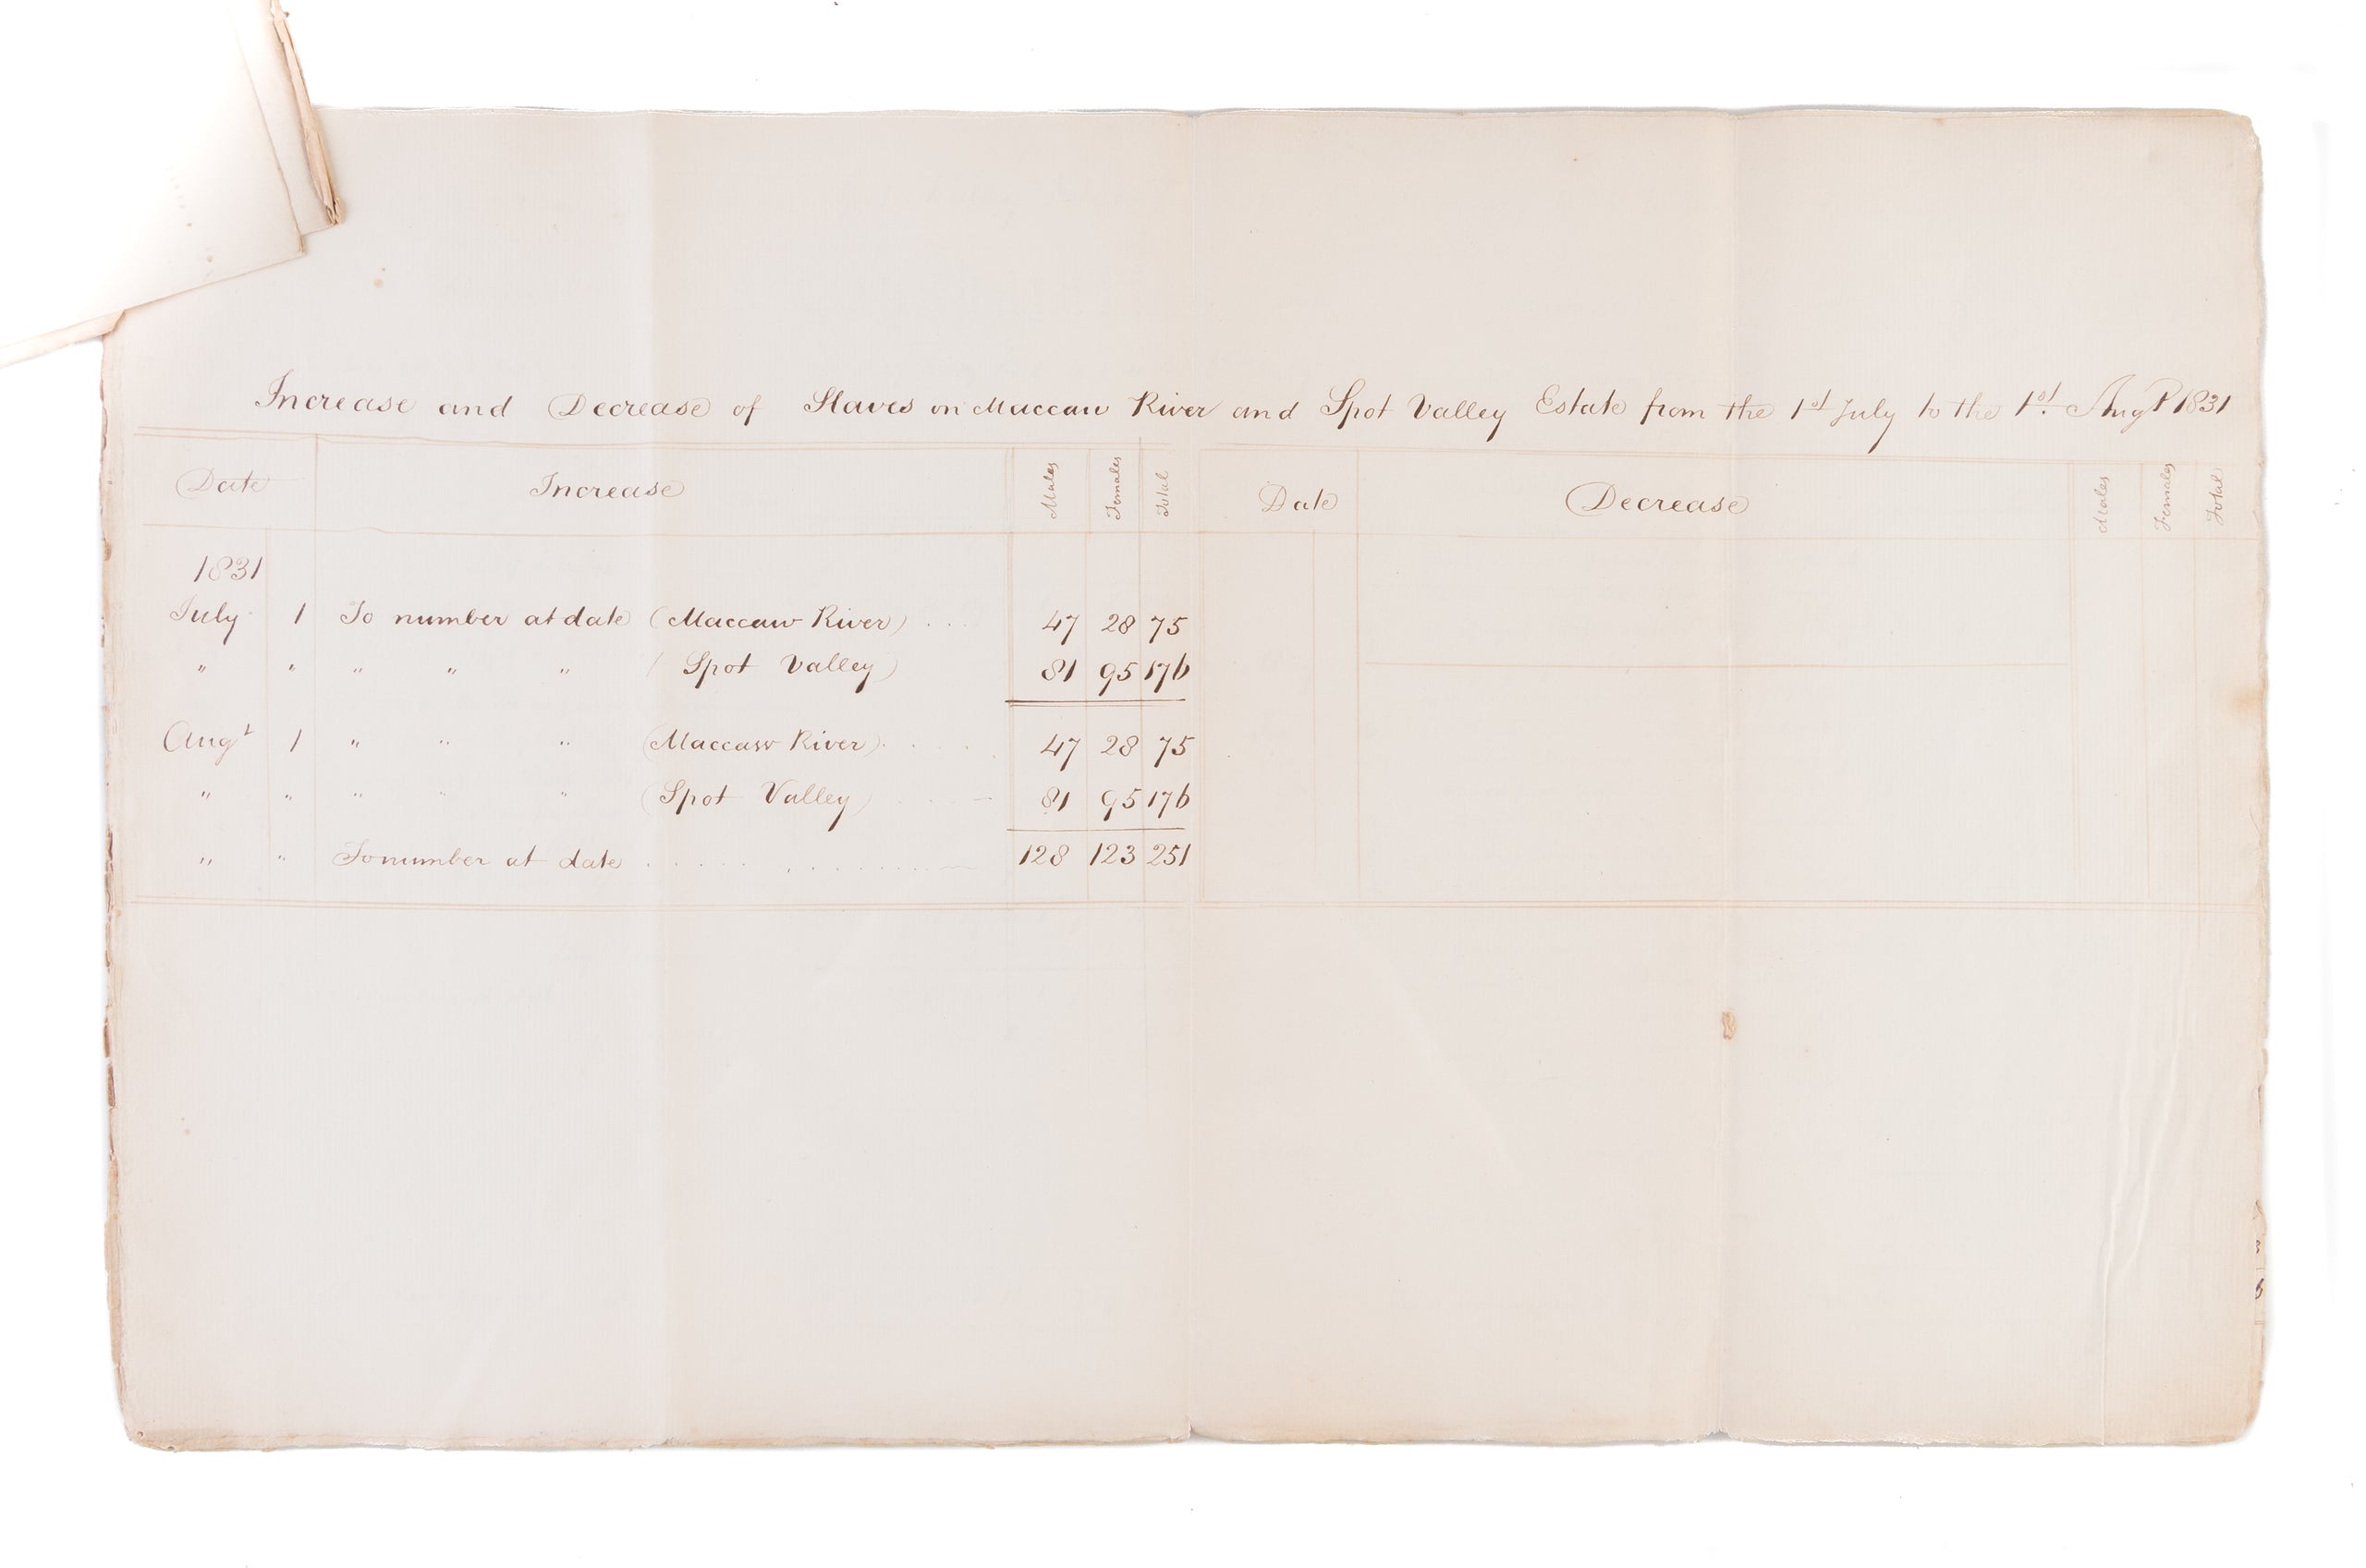 Increase and Decrease of Slaves on Maccaw River and Spot Valley Estate from the 1st July to the 1st. Augt 1831
Date Increase Males Females Total Date Decrease Males Females Total
1831
July 1 To number at date (Maccaw River) . . . 47 28 75
" " " " " (Spot Valley) 81 95 176
Augt 1 " " " (Maccaw River) . . . . 47 28 75
" " " " " (Spot Valley) . . . . 81 95 176
" " To number at date . . . . . . . . . . . . . 128 123 251